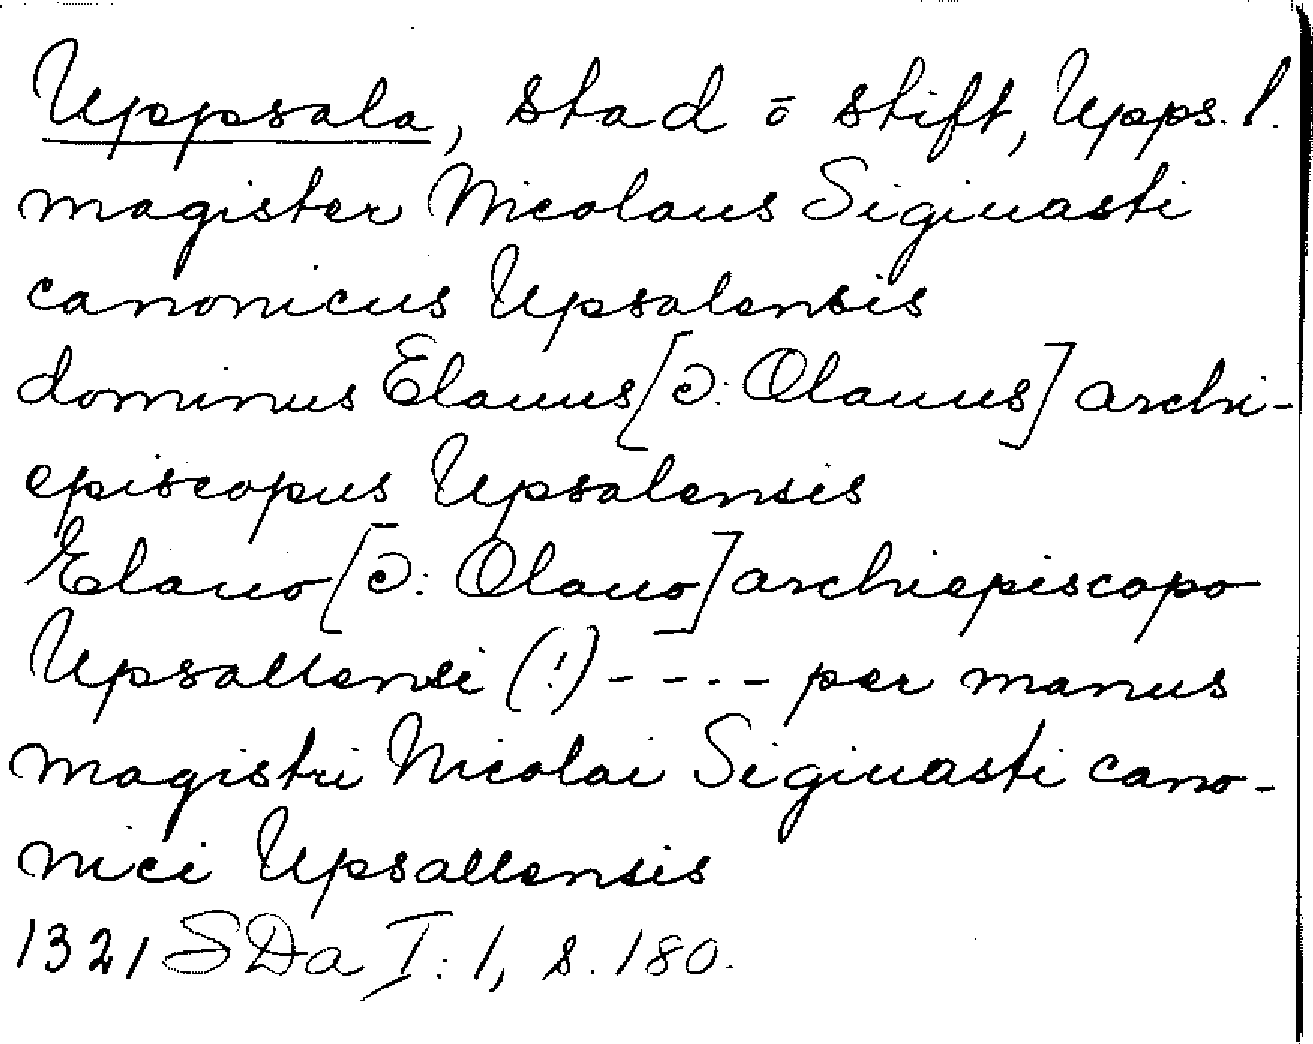 Uppsala, stad o stift, Upps. l.
magister Nicolaus Siginasti
canonicus Upsalensis
dominus Elauus [ɔ: Olauus] archi-
episcopus Upsalensis
Elauo [ɔ: Olauo] archiepiscopo
Upsallensi (!) - - - - per manus
magistri Nicolai Siginasti cano-
nici Upsallensis
1321 SDa I: 1, s. 180.